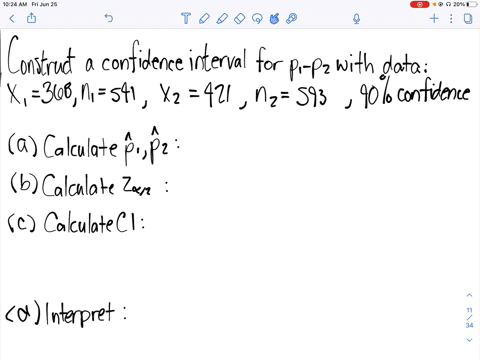 10:24 AM Fri Jun 25
20%
Construct a confidence interval for p₁-p₂ with data:
x₁=368, n₁=541, x₂=421, n₂=593, 90% confidence
(a) Calculate p̂₁, p̂₂:
(b) Calculate Zα/2:
(c) Calculate CI:
(d) Interpret:
11
/
34